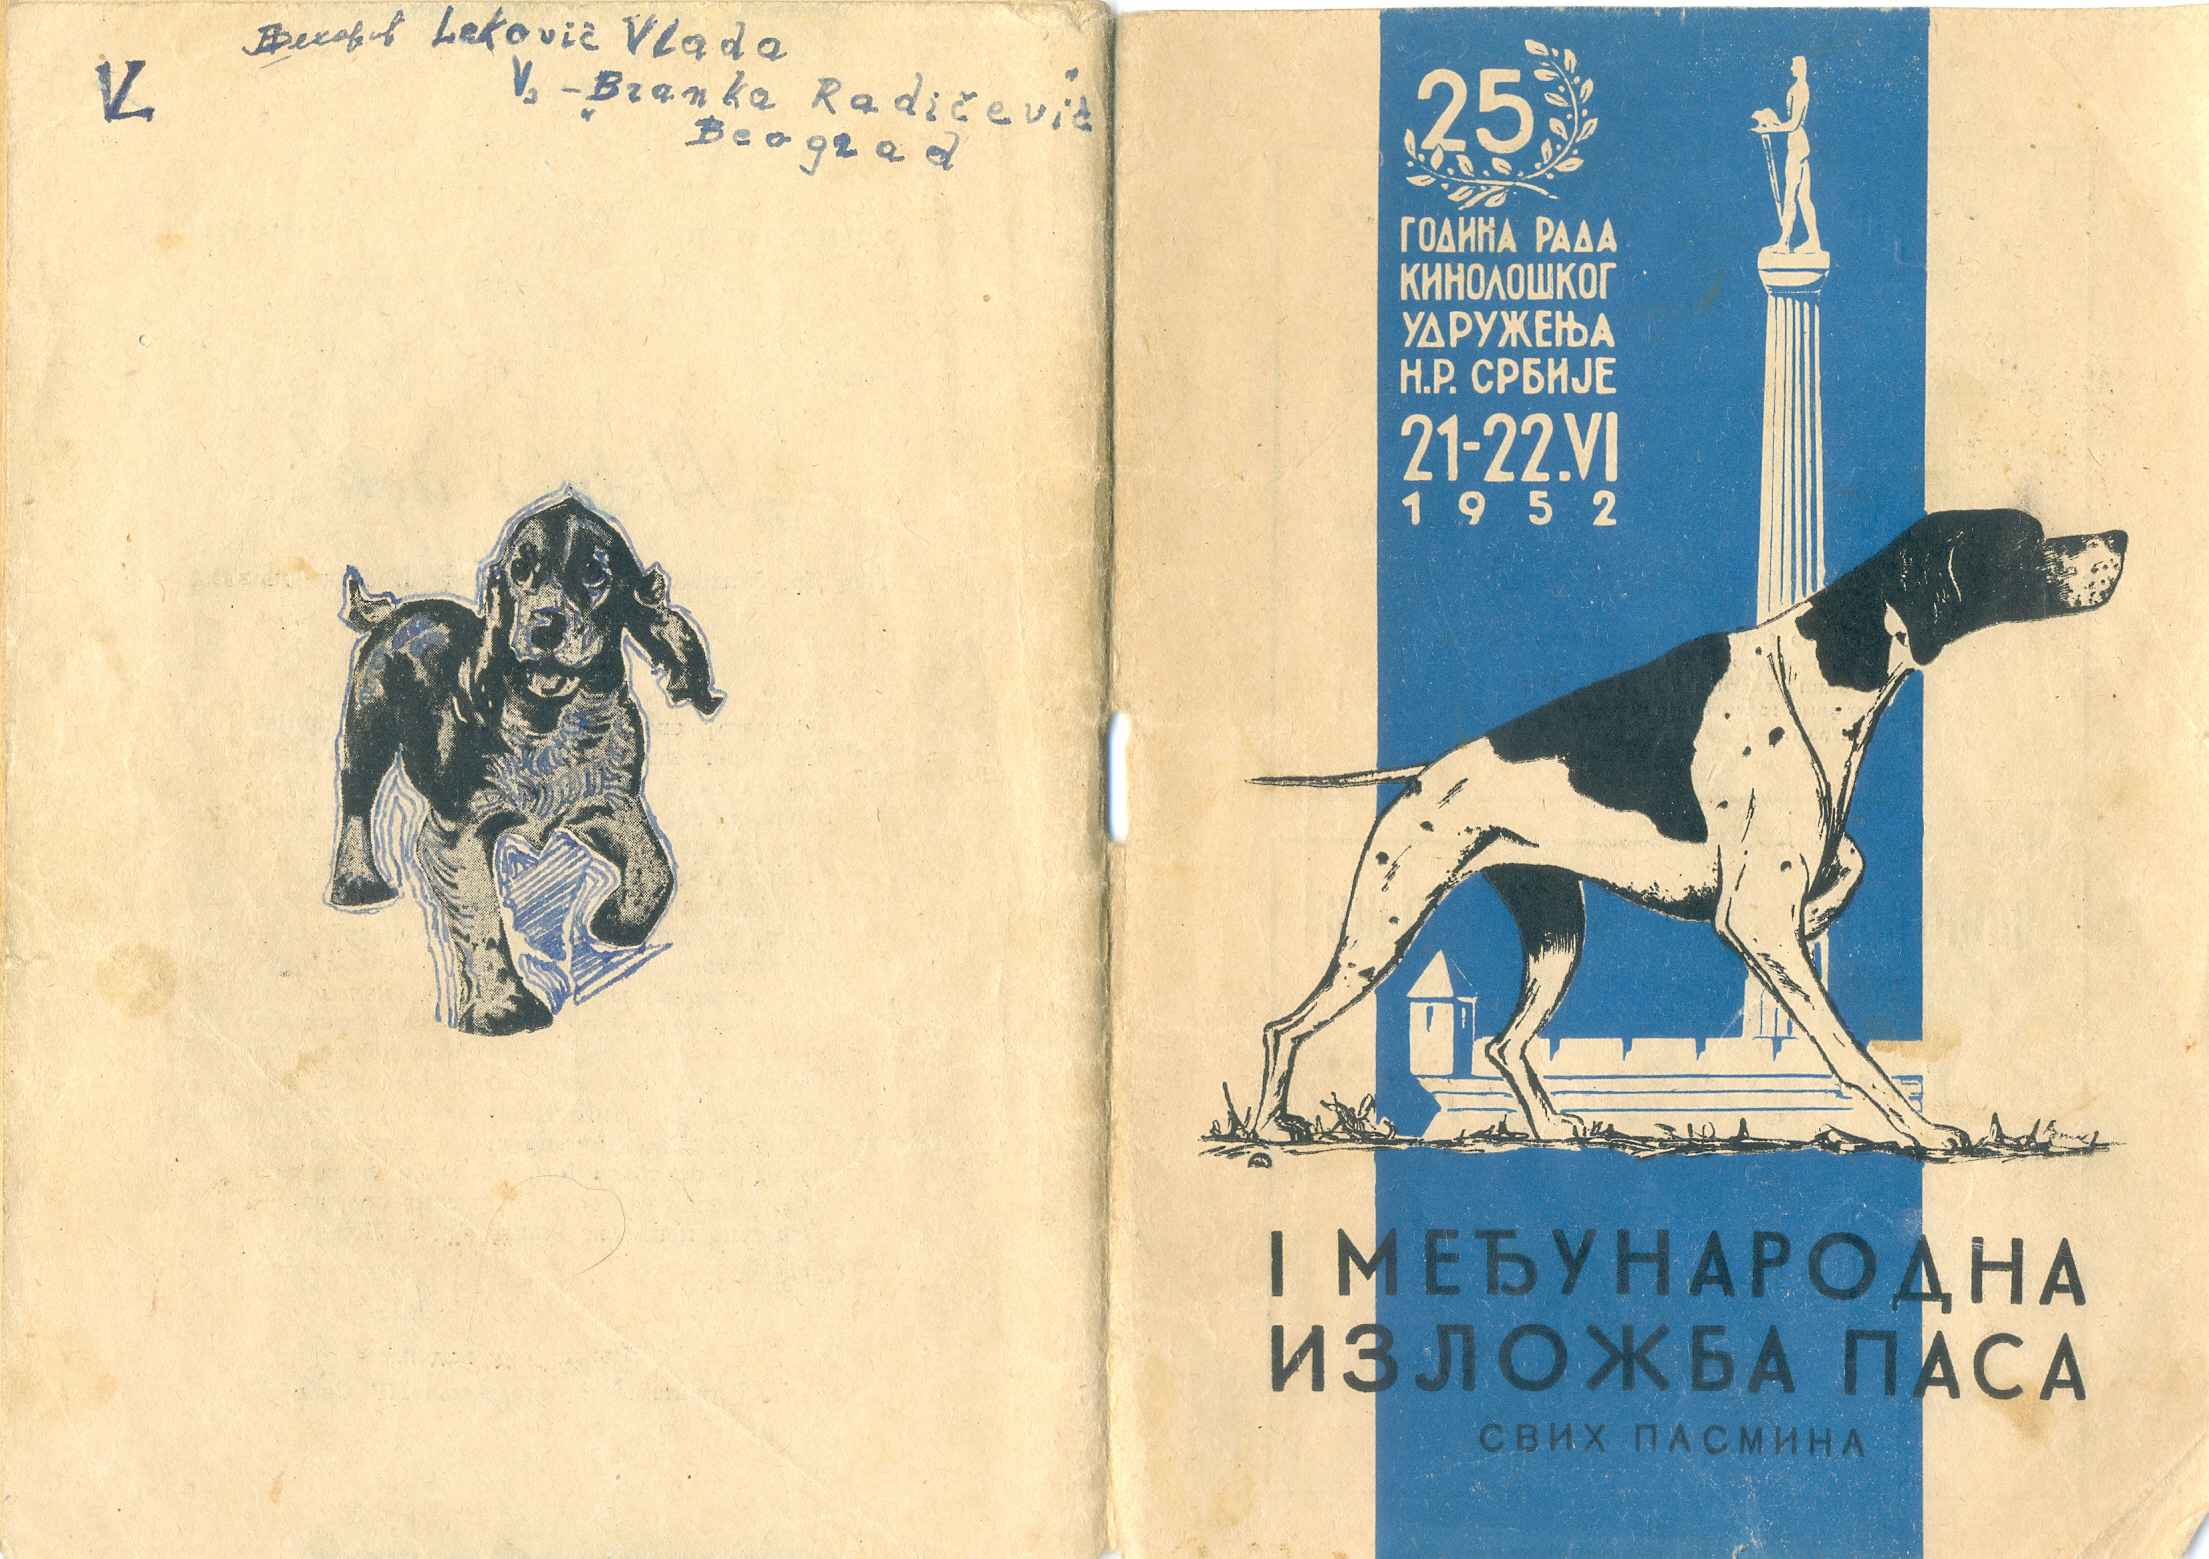 Leković Vlada
V. - "Branka Radičević"
Beograd
VL
25
ГОДИНА РАДА
КИНОЛОШКОГ
УДРУЖЕЊА
Н.Р. СРБИЈЕ
21-22.VI
1952
I МЕЂУНАРОДНА
ИЗЛОЖБА ПАСА
СВИХ ПАСМИНА